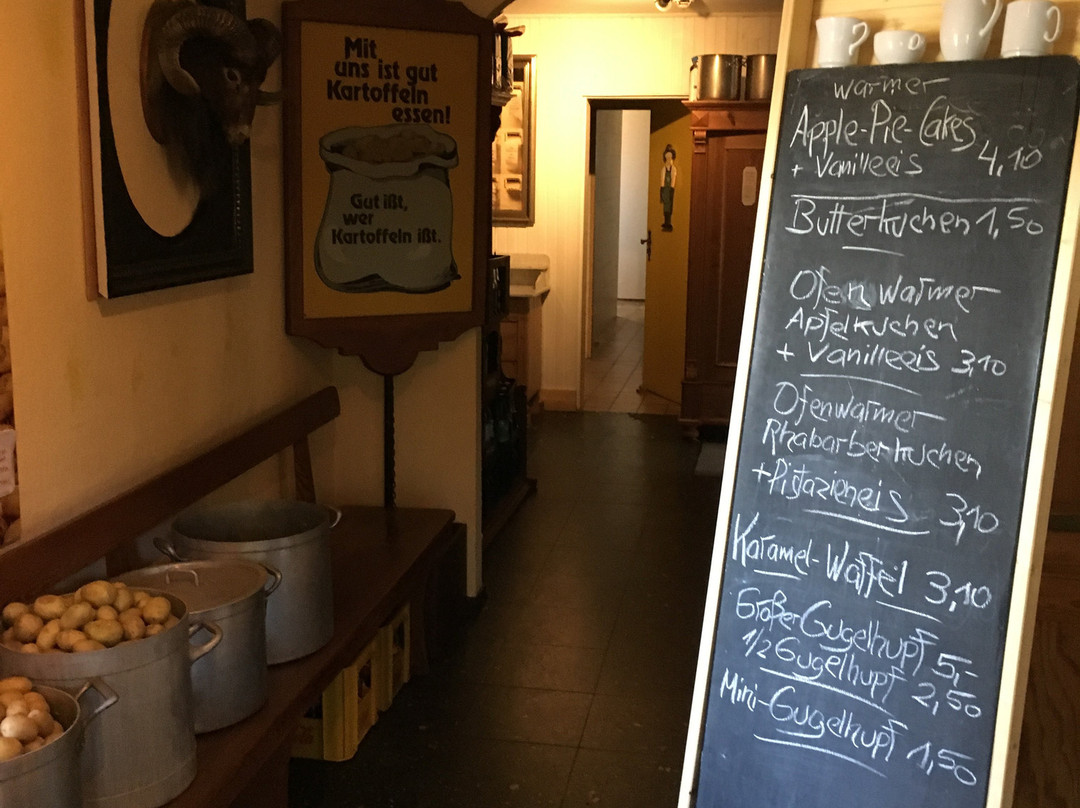 Mit
uns ist gut
Kartoffeln
essen!
Gut ißt,
wer
Kartoffeln ißt.
warmer
Apple-Pie-Cakes
+ Vanilleeis 4,10
Butterkuchen 1,50
Ofenwarmer
Apfelkuchen
+ Vanilleeis 3,10
Ofenwarmer
Rhabarberkuchen
+Pistazieneis 3,10
Karamel-Waffel 3,10
Großer Gugelhupf 5,-
1/2 Gugelhupf 2,50
Mini-Gugelhupf 1,50